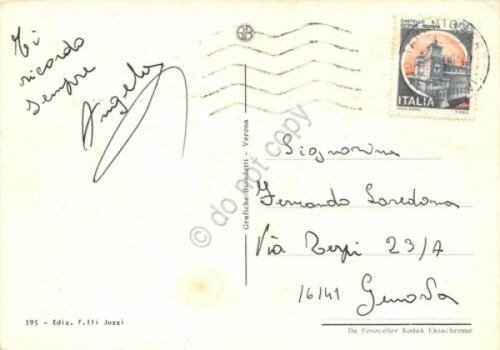 Ti
ricordo
sempre
Angelo
GB
CASTELLO
ITALIA
Grafiche Biondetti - Verona
© do not copy
Signorina
Fernanda Loredana
Via 23/A
16141 Genova
195 - Ediz. F.lli Jozzi
Da Fotocolor Kodak Ektachrome